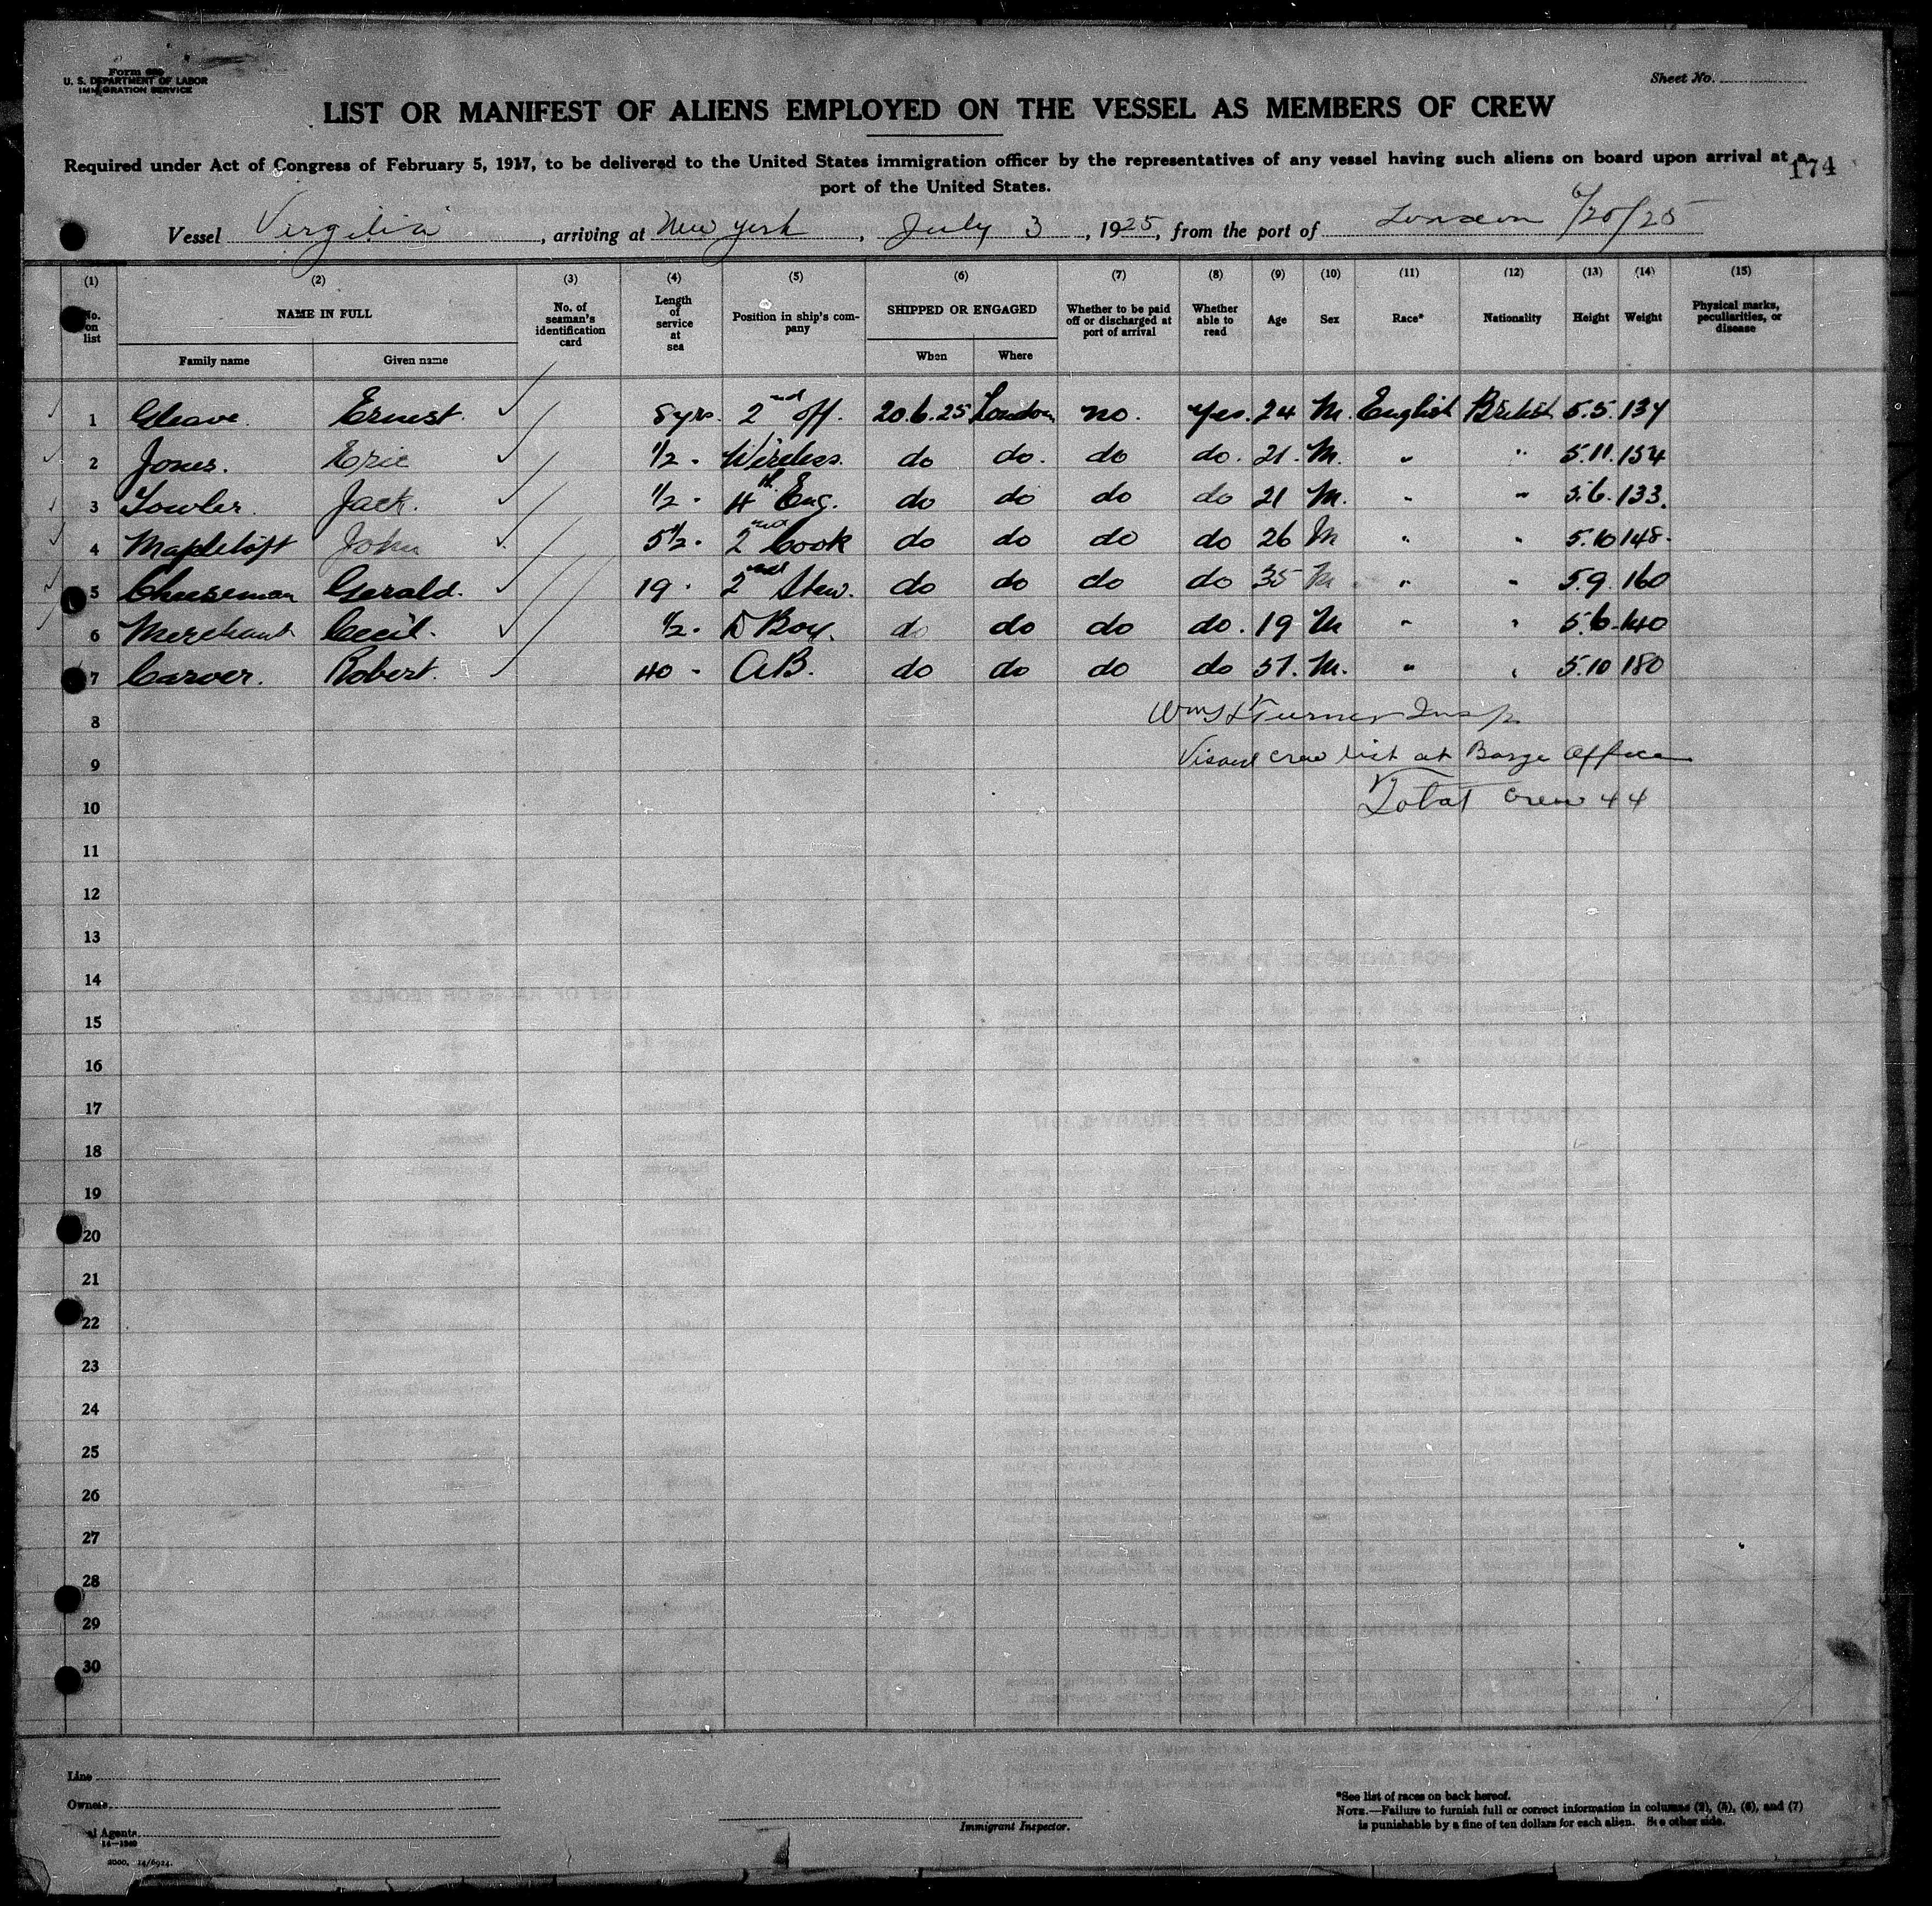 Form
U. S. DEPARTMENT OF LABOR
IMMIGRATION SERVICE
Sheet No.
LIST OR MANIFEST OF ALIENS EMPLOYED ON THE VESSEL AS MEMBERS OF CREW
Required under Act of Congress of February 5, 1917, to be delivered to the United States immigration officer by the representatives of any vessel having such aliens on board upon arrival at a
174
port of the United States.
Vessel Virgilia, arriving at New York, July 3, 1925, from the port of London 6/20/25
(1) (2) (3) (4) (5) (6) (7) (8) (9) (10) (11) (12) (13) (14) (15)
No. on list NAME IN FULL No. of seaman's identification card Length of service at sea Position in ship's company SHIPPED OR ENGAGED Whether to be paid off or discharged at port of arrival Whether able to read Age Sex Race* Nationality Height Weight Physical marks, peculiarities, or disease
Family name Given name When Where
1 Gleave. Ernest. 8 yrs. 2nd off. 20.6.25 London no. yes. 24 M. English British 5.5. 134
2 Jones. Eric 1/2 - Wireless. do do. do do. 21. M. " " 5.11. 154
3 Jack. 1/2 - 4th Eng. do do do do 21 M. " " 5.6. 133.
4 Mapletoft John 5 1/2 - 2nd Cook do do do do 26 M " " 5.10 148.
5 Cheeseman Gerald. 19 - 2nd Stew. do do do do 35 M " " 5.9. 160
6 Merchant Cecil. 1/2 - D Boy. do do do do. 19 M " " 5.6. 140
7 Carver. Robert. 40 - AB. do do do do 57. M. " " 5.10 180
8 Turner Insp
9 Visaed crew list at Barge Office
10 Total crew 44
11
12
13
14
15
16
17
18
19
20
21
22
23
24
25
26
27
28
29
30
Line
Owners
al Agents
14-1240
2000, 14/6924.
Immigrant Inspector.
*See list of races on back hereof.
NOTE.—Failure to furnish full or correct information in columns (2), (5), (6), and (7)
is punishable by a fine of ten dollars for each alien. See other side.